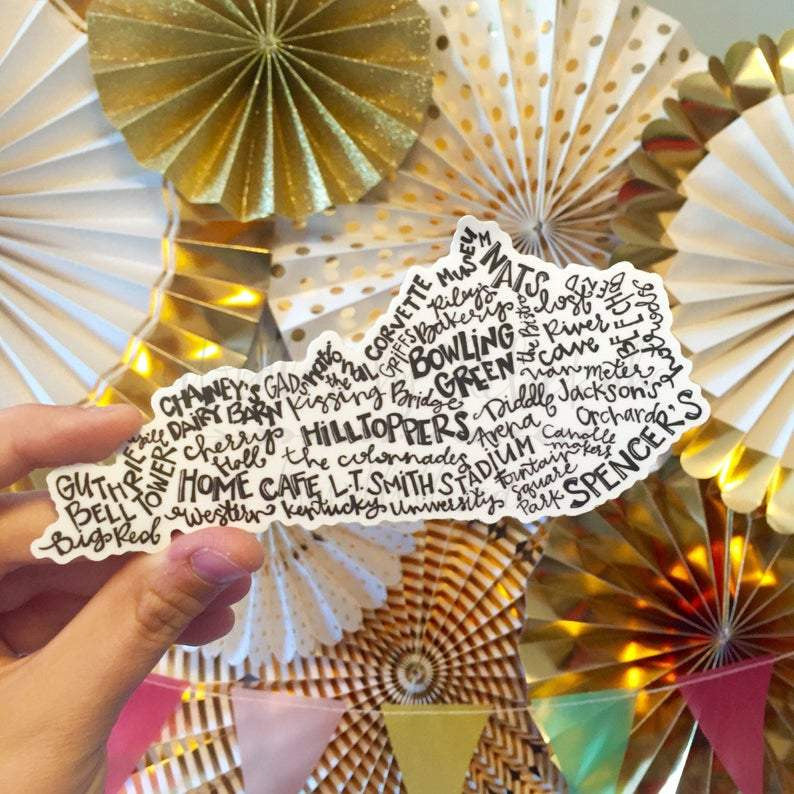 CORVETTE MUSEUM
NATS
Lost River Cave
BEECH BEND
the hot house
Riley's Bakery
GRIFF'S
BOWLING GREEN
Van Meter
national
the Kissing Bridge
GADS
CHANEY'S DAIRY BARN
HILLTOPPERS
Diddle Arena
Jackson's Orchard
Candle makers
Cherry Hall
the colonnades
GUTHRIE BELL TOWER
HOME CAFE
L.T. SMITH STADIUM
Fountain Square Park
SPENCER'S
Big Red
Western Kentucky University